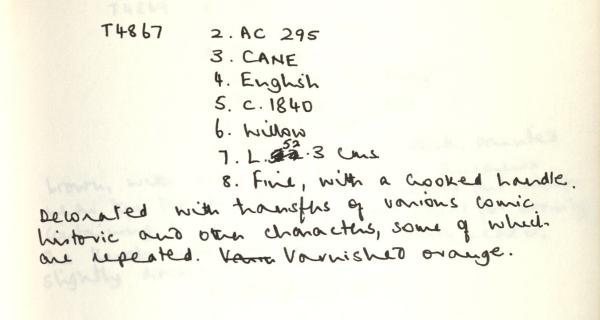 T4867 2. AC 295
3. CANE
4. English
5. C. 1840
6. Willow
7. L. 52.3 cms
8. Fine, with a crooked handle.
Decorated with transfers of various comic
historic and other characters, some of which
are repeated. Varnished orange.